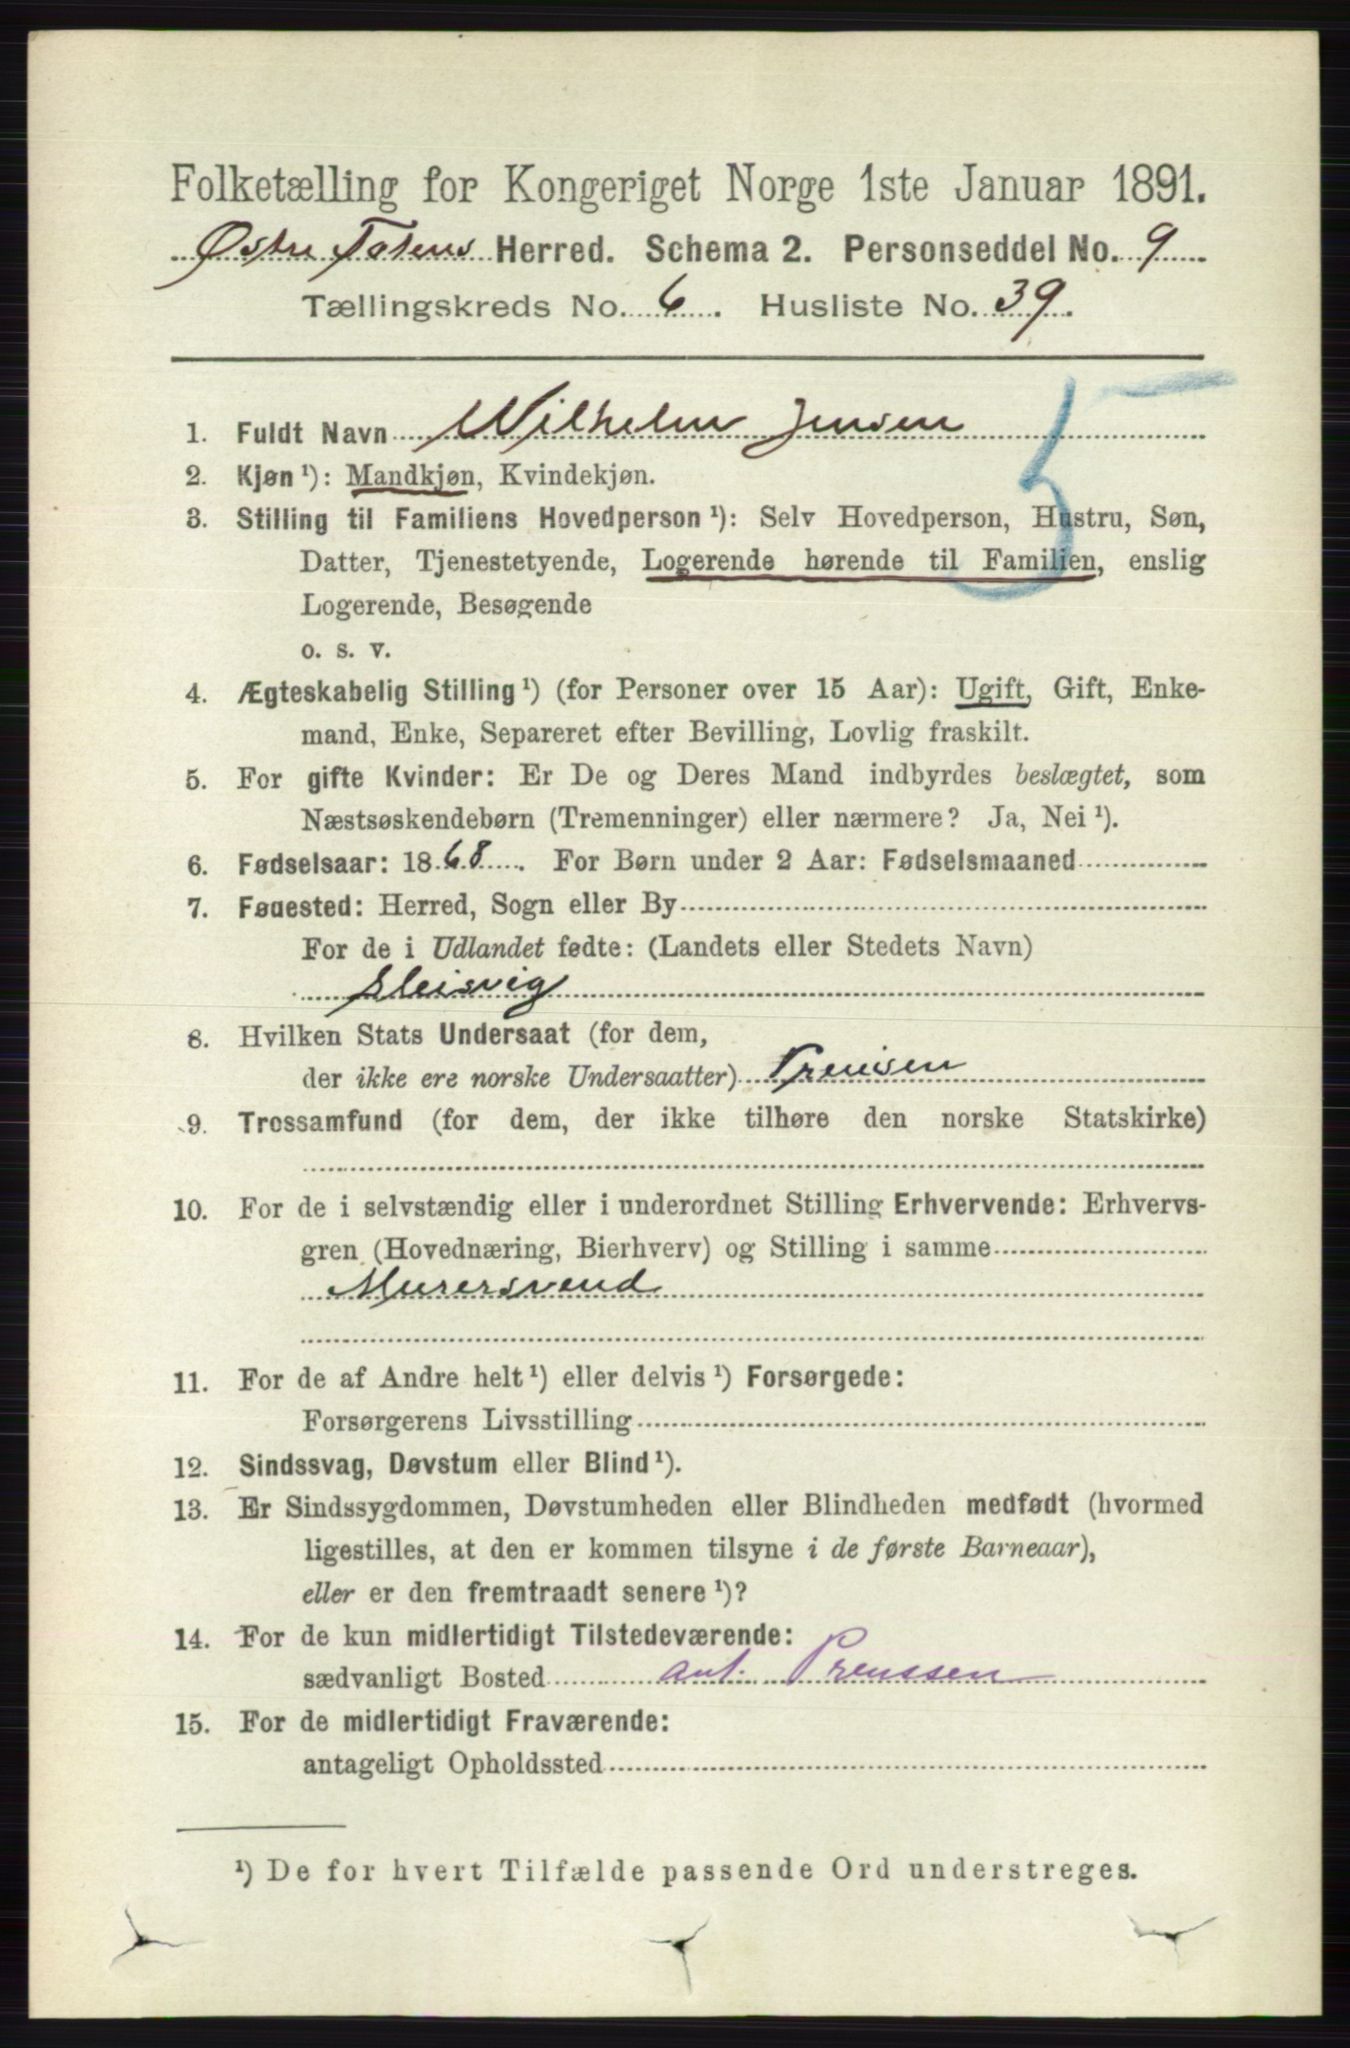 Folketælling for Kongeriget Norge 1ste Januar 1891.
Østre Totens Herred. Schema 2. Personseddel No. 9
Tællingskreds No. 6. Husliste No. 39.
5
1. Fuldt Navn Wilhelm Jensen
2. Kjøn ¹): Mandkjøn, Kvindekjøn.
3. Stilling til Familiens Hovedperson ¹): Selv Hovedperson, Hustru, Søn,
Datter, Tjenestetyende, Logerende hørende til Familien, enslig
Logerende, Besøgende
o. s. v.
4. Ægteskabelig Stilling ¹) (for Personer over 15 Aar): Ugift, Gift, Enke-
mand, Enke, Separeret efter Bevilling, Lovlig fraskilt.
5. For gifte Kvinder: Er De og Deres Mand indbyrdes beslægtet, som
Næstsøskendebørn (Tremenninger) eller nærmere? Ja, Nei ¹).
6. Fødselsaar: 1868. For Børn under 2 Aar: Fødselsmaaned
7. Fødested: Herred, Sogn eller By
For de i Udlandet fødte: (Landets eller Stedets Navn)
Sleisvig
8. Hvilken Stats Undersaat (for dem,
der ikke ere norske Undersaatter) Preussen
9. Trossamfund (for dem, der ikke tilhøre den norske Statskirke)
10. For de i selvstændig eller i underordnet Stilling Erhvervende: Erhvervs-
gren (Hovednæring, Bierhverv) og Stilling i samme
Murersvend
11. For de af Andre helt ¹) eller delvis ¹) Forsørgede:
Forsørgerens Livsstilling
12. Sindssvag, Døvstum eller Blind ¹).
13. Er Sindssygdommen, Døvstumheden eller Blindheden medfødt (hvormed
ligestilles, at den er kommen tilsyne i de første Barneaar),
eller er den fremtraadt senere ¹)?
14. For de kun midlertidigt Tilstedeværende:
sædvanligt Bosted ant. Preussen
15. For de midlertidigt Fraværende:
antageligt Opholdssted
¹) De for hvert Tilfælde passende Ord understreges.